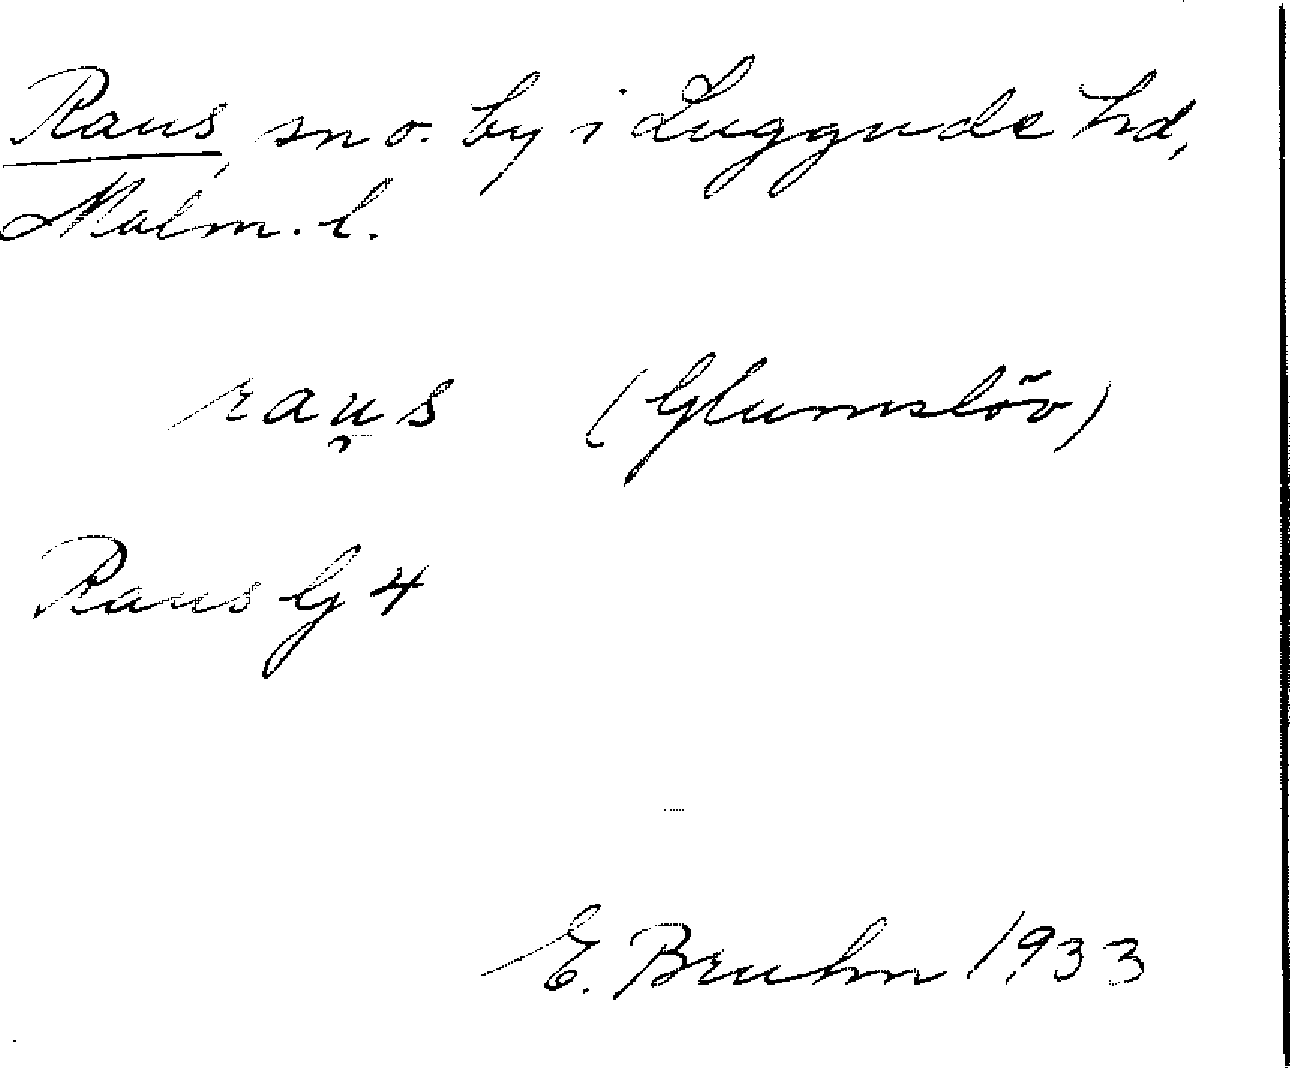 Raus, sn o. by i Luggude hd,
Malm. l.
rau̯s (Glumslöv)
Raus G 4
E. Bruhn 1933